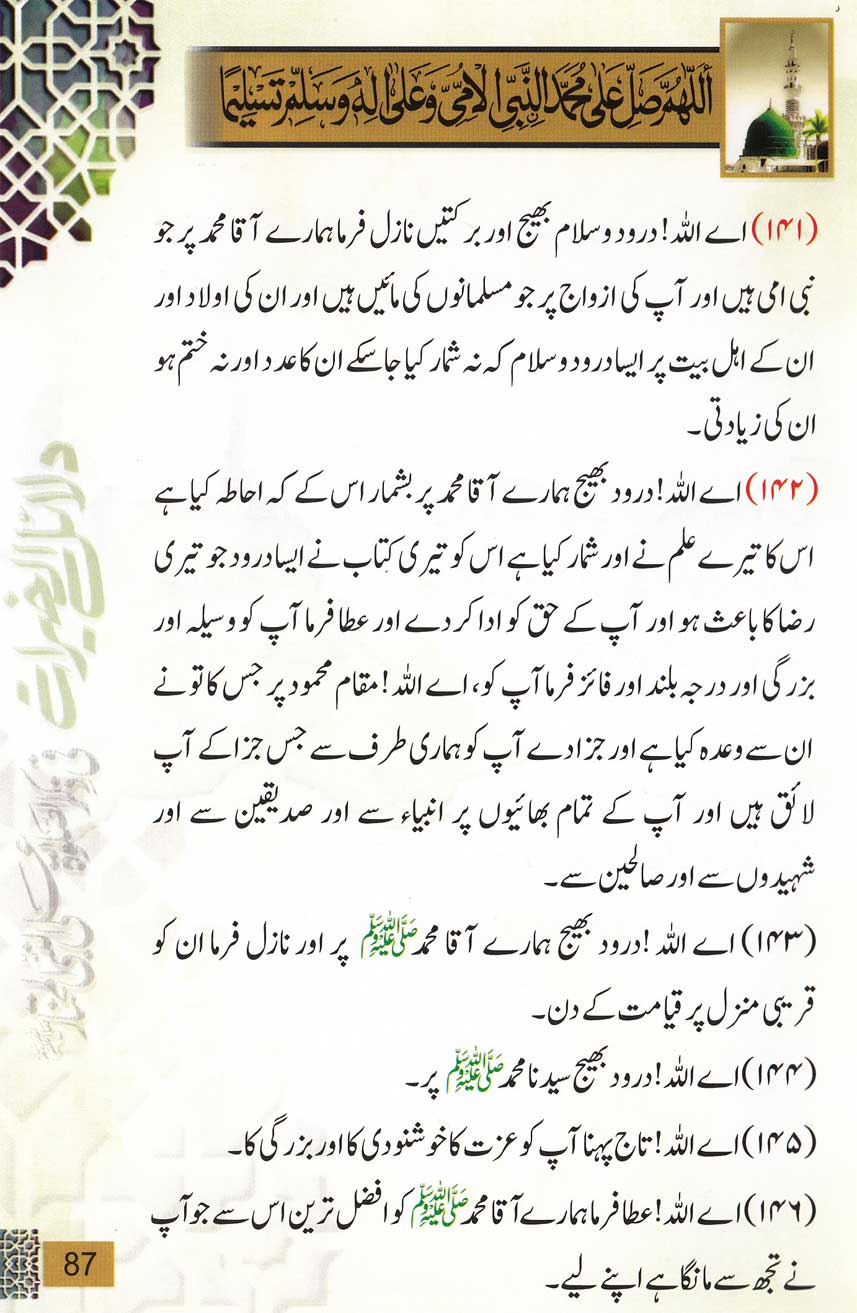 اَللّٰهُمَّ صَلِّ عَلٰى مُحَمَّدِ النَّبِيِّ الْاُمِّيِّ وَعَلٰى اٰلِهٖ وَسَلِّمْ تَسْلِيْمًا
(۱۴۱) اے اللہ! درود وسلام بھیج اور برکتیں نازل فرما ہمارے آقا محمد پر جو
نبی امی ہیں اور آپ کی ازواج پر جو مسلمانوں کی مائیں ہیں اور ان کی اولاد اور
ان کے اہل بیت پر ایسا درود وسلام کہ نہ شمار کیا جاسکے ان کا عدد اور نہ ختم ہو
ان کی زیادتی۔
(۱۴۲) اے اللہ! درود بھیج ہمارے آقا محمد پر بشمار اس کے کہ احاطہ کیا ہے
اس کا تیرے علم نے اور شمار کیا ہے اس کو تیری کتاب نے ایسا درود جو تیری
رضا کا باعث ہو اور آپ کے حق کو ادا کر دے اور عطا فرما آپ کو وسیلہ اور
بزرگی اور درجہ بلند اور فائز فرما آپ کو، اے اللہ! مقام محمود پر جس کا تو نے
ان سے وعدہ کیا ہے اور جزا دے آپ کو ہماری طرف سے جس جزا کے آپ
لائق ہیں اور آپ کے تمام بھائیوں پر انبیاء سے اور صدیقین سے اور
شہیدوں سے اور صالحین سے۔
(۱۴۳) اے اللہ! درود بھیج ہمارے آقا محمد ﷺ پر اور نازل فرما ان کو
قریبی منزل پر قیامت کے دن۔
(۱۴۴) اے اللہ! درود بھیج سیدنا محمد ﷺ پر۔
(۱۴۵) اے اللہ! تاج پہنا آپ کو عزت کا خوشنودی کا اور بزرگی کا۔
(۱۴۶) اے اللہ! عطا فرما ہمارے آقا محمد ﷺ کو افضل ترین اس سے جو آپ
نے تجھ سے مانگا ہے اپنے لیے۔
دلائل الخیرات
87